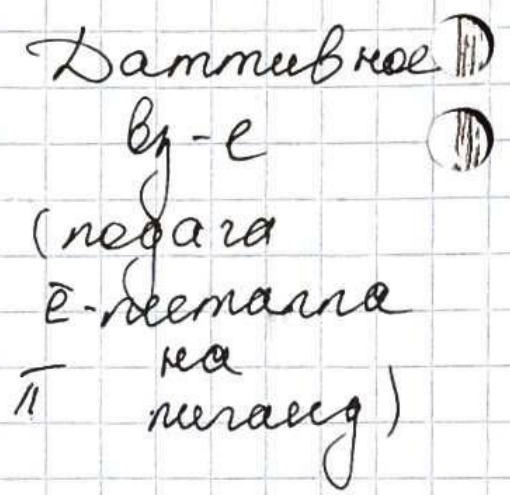 Даттивное
вз-е
(подача
ē-металла
на
π лиганд)